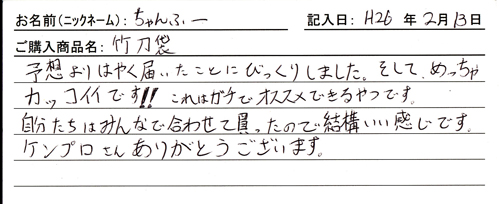 お名前(ニックネーム):ちゃんふー 記入日:H26年2月13日
ご購入商品名:竹刀袋
予想よりはやく届いたことにびっくりしました。そして、めっちゃ
カッコイイです!! これはガチでオススメできるやつです。
自分たちはみんなで合わせて買ったので結構いい感じです。
ケンプロさんありがとうございます。